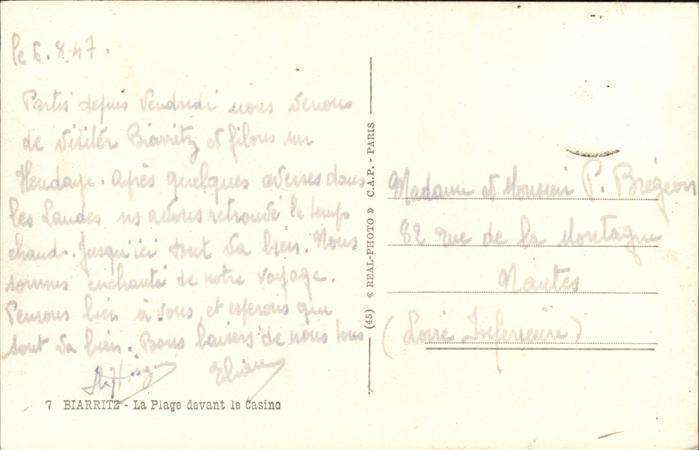 le 6.8.47.
Partis depuis Vendredi nous venons
de visiter Biarritz et filons sur
Hendaye. Après quelques averses dans
les Landes ns avons retrouvé le temps
chaud. Jusqu'ici tout va bien. Nous
sommes enchantés de notre voyage.
Pensons bien à vous, et espérons que
tout va bien. Bons baisers de nous tous
Eliane
7 BIARRITZ - La Plage devant le Casino
(45) « REAL-PHOTO » C.A.P. - PARIS
Madame et Monsieur P. Brégeon
82 rue de la Montagne
Nantes
(Loire Inférieure)